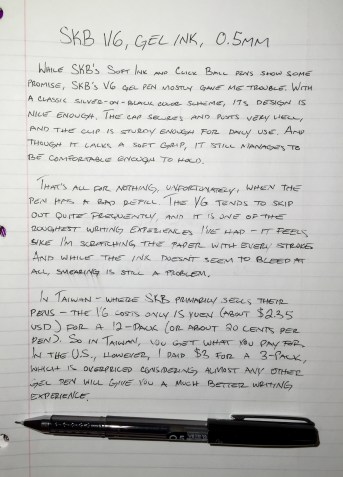 SKB V6, GEL INK, 0.5MM
WHILE SKB'S SOFT INK AND CLICK BALL PENS SHOW SOME
PROMISE, SKB'S V6 GEL PEN MOSTLY GAVE ME TROUBLE. WITH
A CLASSIC SILVER-ON-BLACK COLOR SCHEME, ITS DESIGN IS
NICE ENOUGH. THE CAP SECURES AND POSTS VERY WELL,
AND THE CLIP IS STURDY ENOUGH FOR DAILY USE. AND
THOUGH IT LACKS A SOFT GRIP, IT STILL MANAGES TO
BE COMFORTABLE ENOUGH TO HOLD.
THAT'S ALL FOR NOTHING, UNFORTUNATELY, WHEN THE
PEN HAS A BAD REFILL. THE V6 TENDS TO SKIP
OUT QUITE FREQUENTLY, AND IT IS ONE OF THE
ROUGHEST WRITING EXPERIENCES I'VE HAD - IT FEELS
LIKE I'M SCRATCHING THE PAPER WITH EVERY STROKE.
AND WHILE THE INK DOESN'T SEEM TO BLEED AT
ALL, SMEARING IS STILL A PROBLEM.
IN TAIWAN - WHERE SKB PRIMARILY SELLS THEIR
PENS - THE V6 COSTS ONLY 15 YUEN (ABOUT $2.35
USD) FOR A 12-PACK (OR ABOUT 20 CENTS PER
PEN). SO IN TAIWAN, YOU GET WHAT YOU PAY FOR.
IN THE U.S., HOWEVER, I PAID $3 FOR A 3-PACK,
WHICH IS OVERPRICED CONSIDERING ALMOST ANY OTHER
GEL PEN WILL GIVE YOU A MUCH BETTER WRITING
EXPERIENCE.
0.5